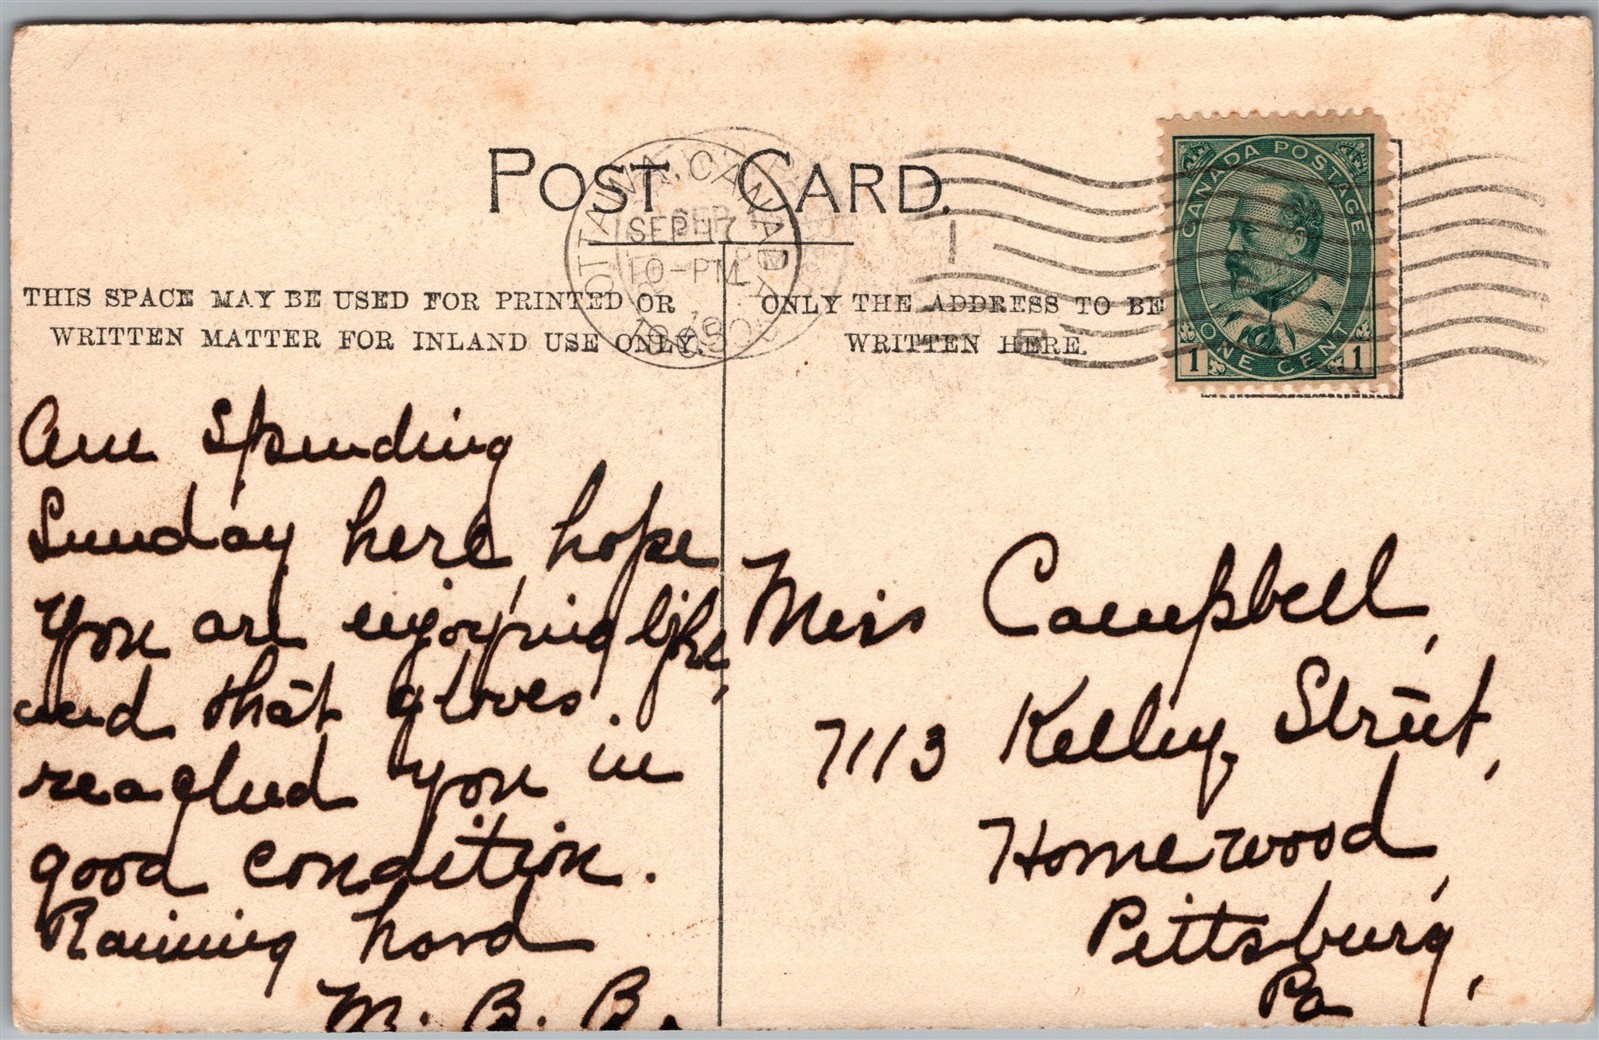 POST CARD.
OTTAWA, CANADA
SEP 17
10-PM
CANADA POSTAGE
ONE CENT
1 1
THIS SPACE MAY BE USED FOR PRINTED OR
WRITTEN MATTER FOR INLAND USE ONLY.
ONLY THE ADDRESS TO BE
WRITTEN HERE.
Am Spending
Sunday here, hope
you are enjoying life,
and that gloves.
reached you in
good condition.
Raining hard
M. B. B.
Miss Campbell,
7113 Kelley Street,
Homewood,
Pittsburg,
Pa